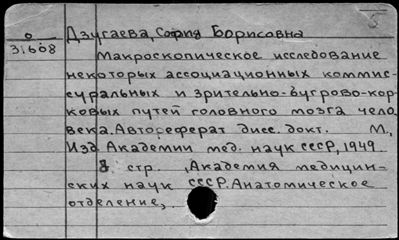 5
о Дзугаева, София Борисовна
31608
Макроскопическое исследование
некоторых ассоциационных коммис-
суральных и зрительно-бугрово-кор-
ковых путей головного мозга чело-
века. Автореферат дисс. докт. М.,
Изд. Академии мед. наук СССР, 1949
8 стр. (Академия медицин-
ских наук СССР. Анатомическое
отделение,